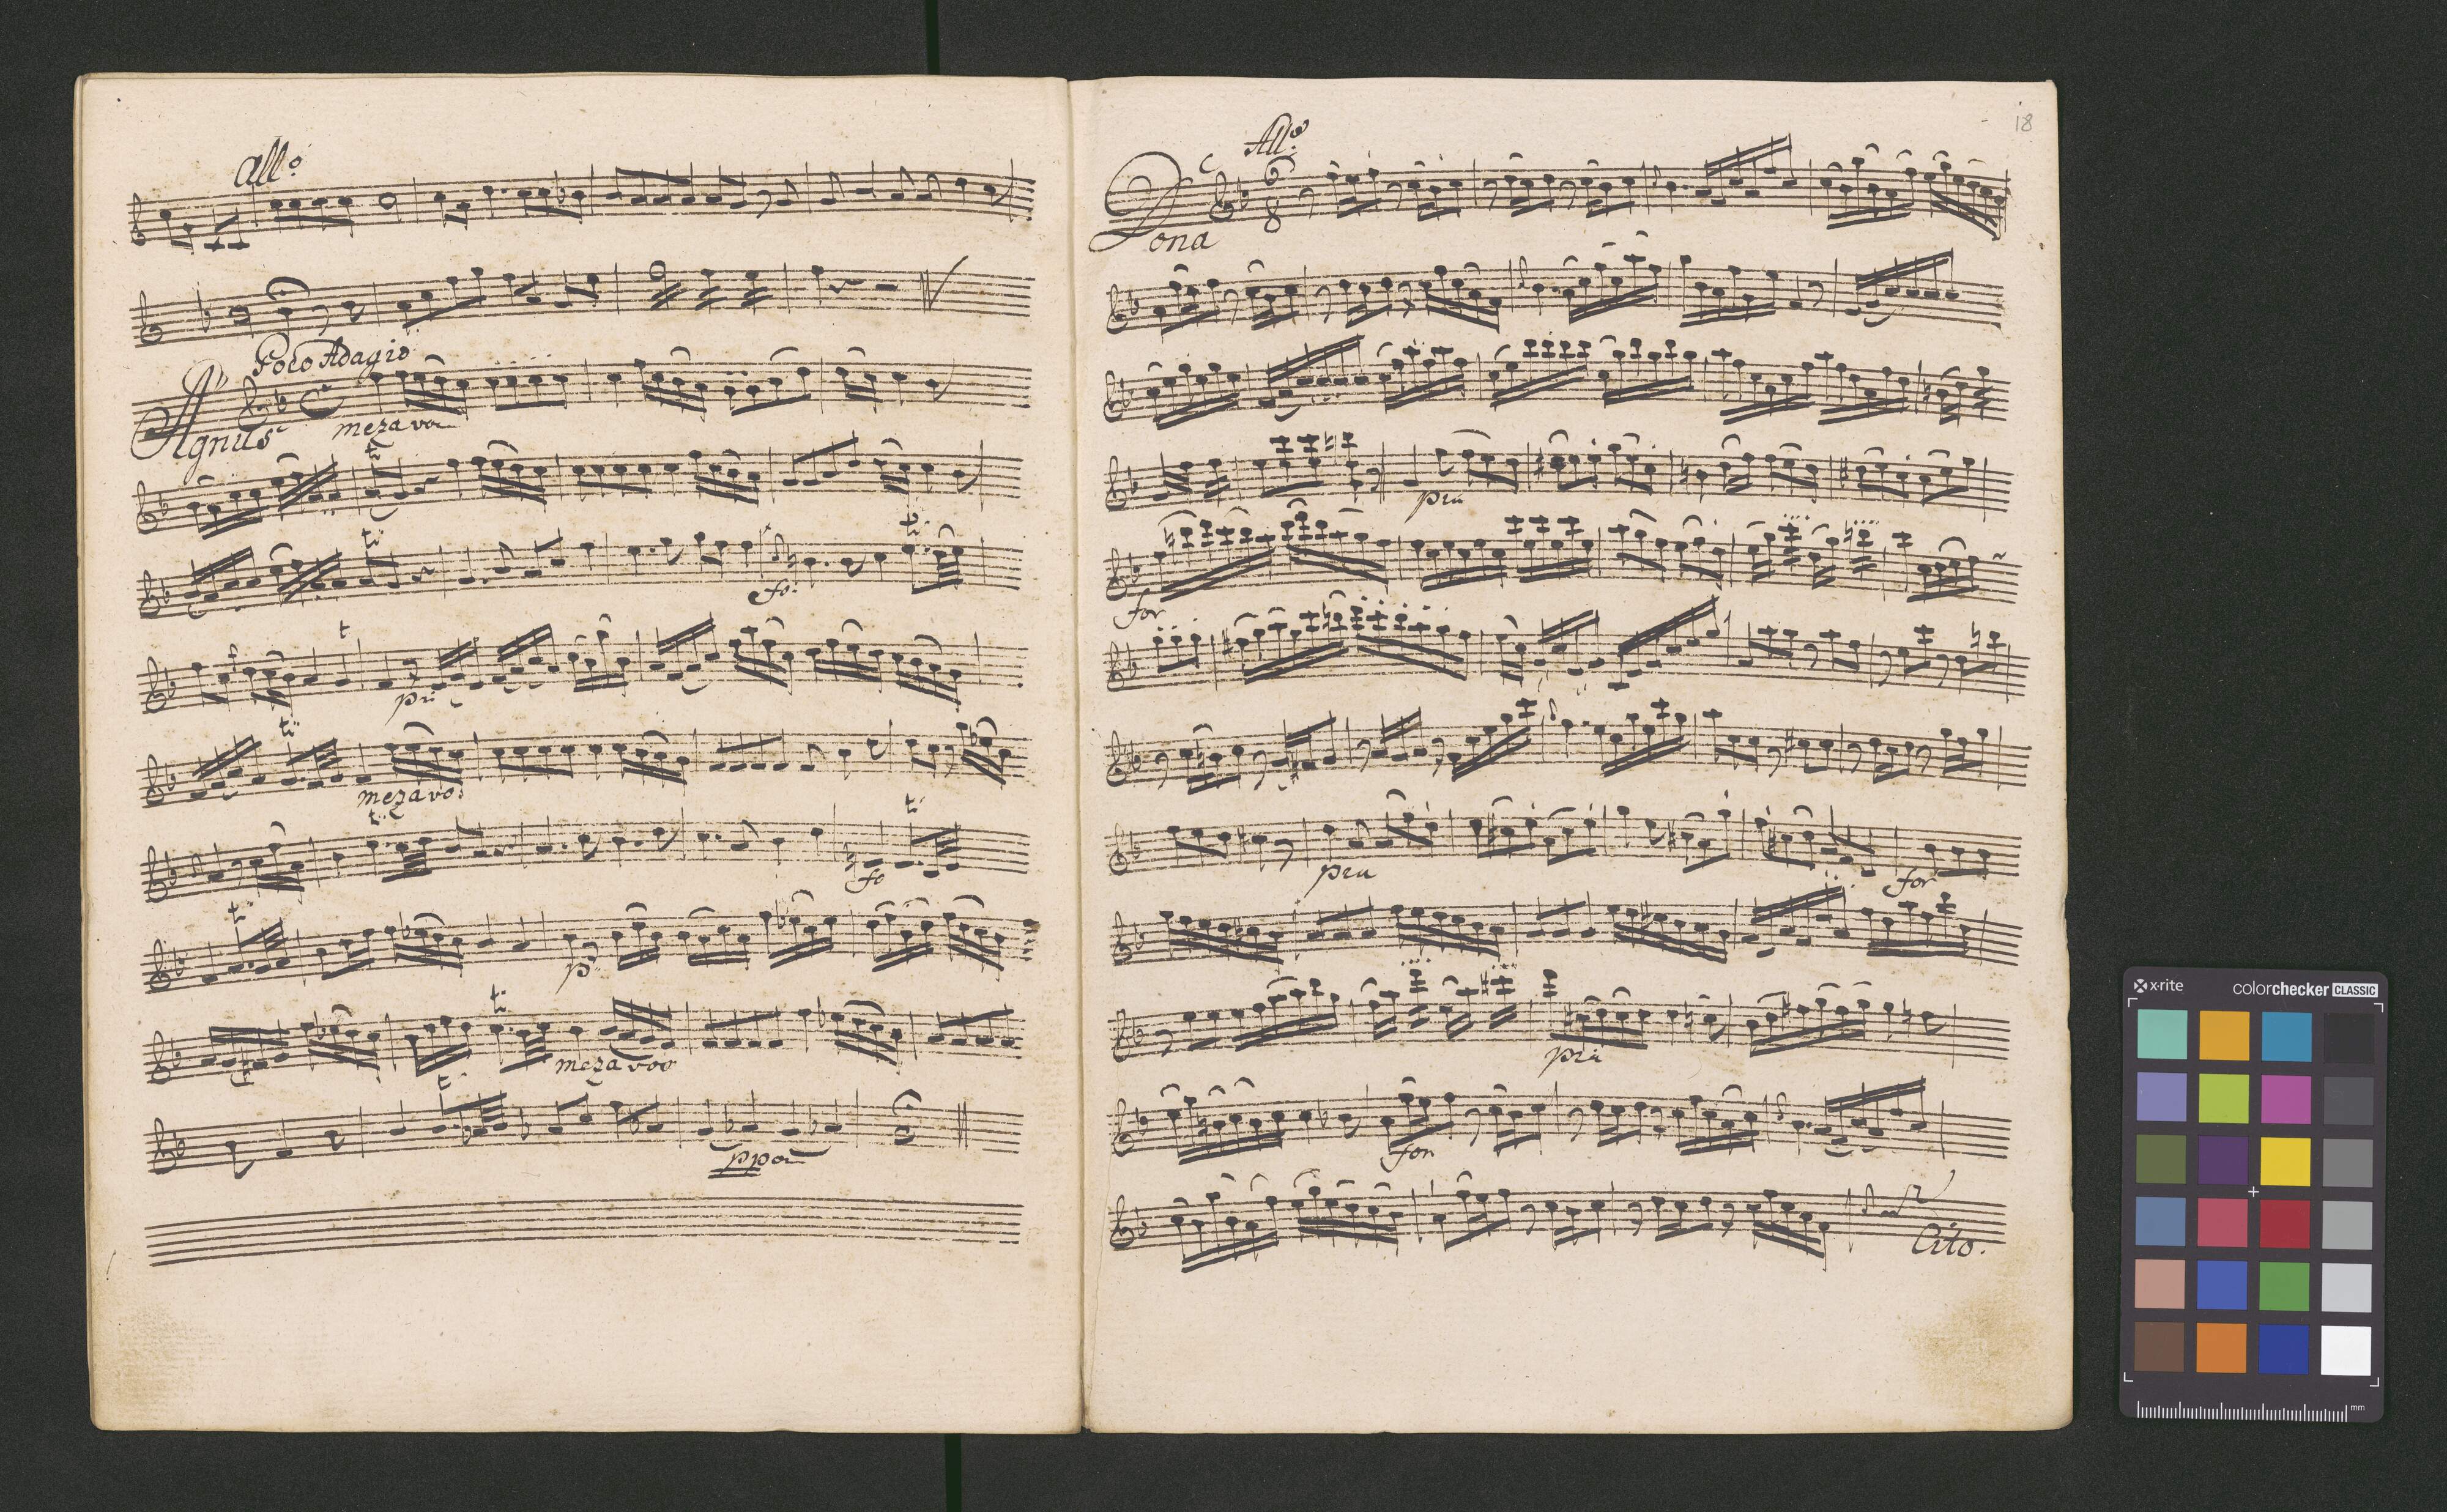 all:o
Poco Adagio
Agnus
meza vo
t:
t:
t:
fo:
t
pia
t:
meza vo:
t:
t:
fo
t:
p:
t:
meza voo
t:
ppo
18
All:o
6
8
Dona
pia
for
pia
for
pia
for
Cito.
x-rite
colorchecker CLASSIC
mm